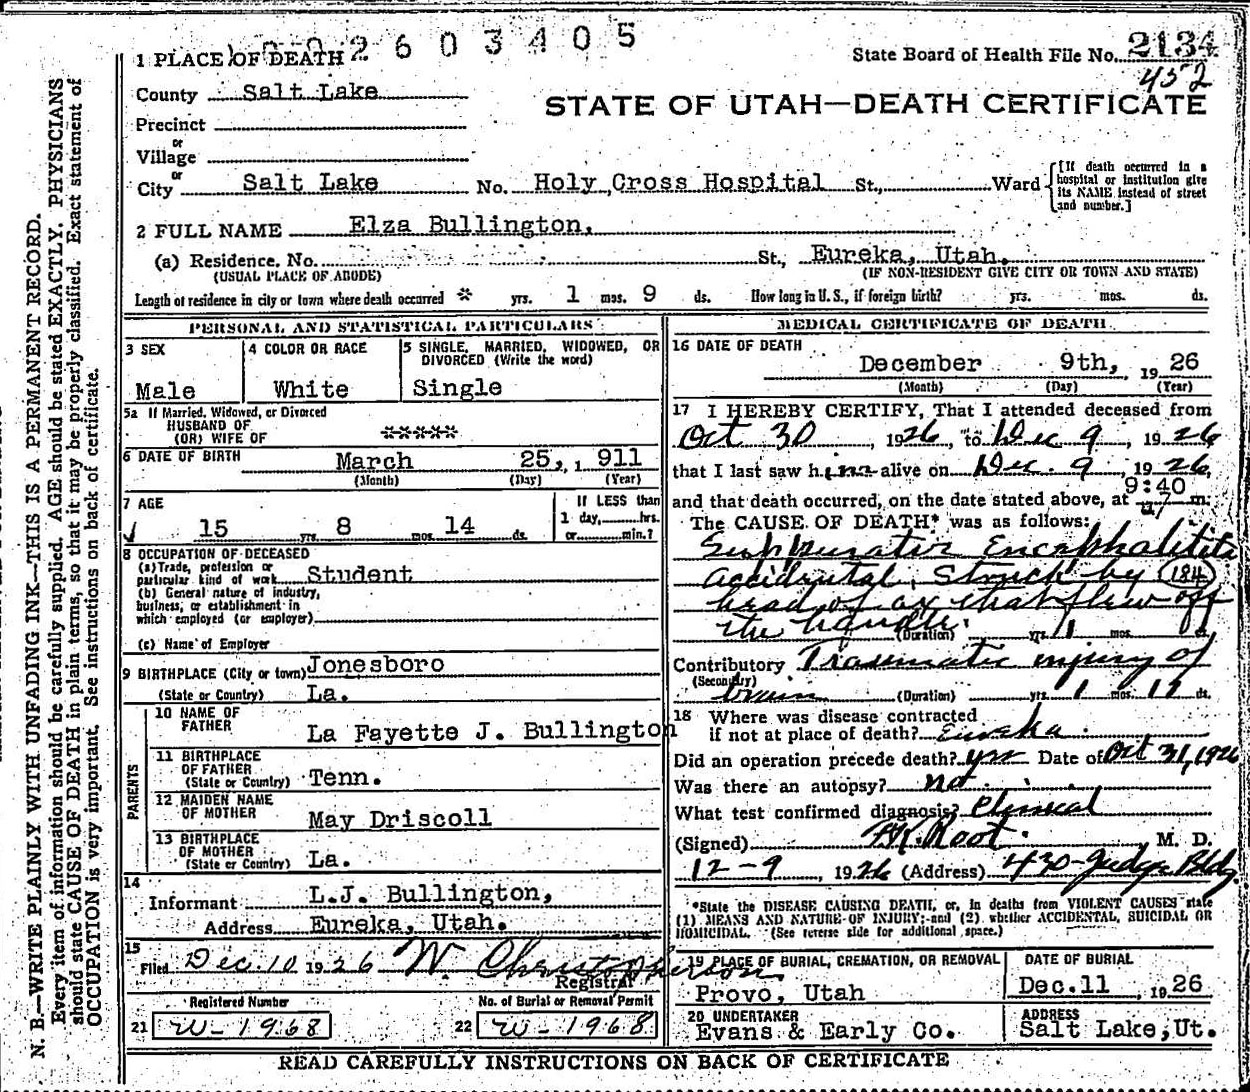 2603405
1 PLACE OF DEATH
State Board of Health File No. 2134
452
County Salt Lake
STATE OF UTAH—DEATH CERTIFICATE
Precinct
or
Village
or
City Salt Lake No. Holy Cross Hospital St., Ward
[If death occurred in a hospital or institution give its NAME instead of street and number.]
2 FULL NAME Elza Bullington,
(a) Residence. No. St., Eureka, Utah.
(USUAL PLACE OF ABODE) (IF NON-RESIDENT GIVE CITY OR TOWN AND STATE)
Length of residence in city or town where death occurred * yrs. 1 mos. 9 ds. How long in U.S., if foreign birth? yrs. mos. ds.
PERSONAL AND STATISTICAL PARTICULARS
3 SEX
Male
4 COLOR OR RACE
White
5 SINGLE, MARRIED, WIDOWED, OR
DIVORCED (Write the word)
Single
5a If Married, Widowed, or Divorced
HUSBAND OF
(OR) WIFE OF *****
6 DATE OF BIRTH March 25, 1911
(Month) (Day) (Year)
7 AGE
15 yrs. 8 mos. 14 ds.
If LESS than
1 day,......hrs.
or......min.?
8 OCCUPATION OF DECEASED
(a) Trade, profession or
particular kind of work Student
(b) General nature of industry,
business, or establishment in
which employed (or employer)
(c) Name of Employer
9 BIRTHPLACE (City or town) Jonesboro
(State or Country) La.
PARENTS
10 NAME OF
FATHER La Fayette J. Bullington
11 BIRTHPLACE
OF FATHER
(State or Country) Tenn.
12 MAIDEN NAME
OF MOTHER May Driscoll
13 BIRTHPLACE
OF MOTHER
(State or Country) La.
14
Informant L.J. Bullington,
Address Eureka, Utah.
15
Filed Dec. 10 1926 W. Christopherson
Registrar
Registered Number
21 W-1968
No. of Burial or Removal Permit
22 W-1968
MEDICAL CERTIFICATE OF DEATH
16 DATE OF DEATH
December 9th, 1926
(Month) (Day) (Year)
17 I HEREBY CERTIFY, That I attended deceased from
Oct 30, 1926, to Dec 9, 1926
that I last saw him alive on Dec. 9, 1926,
9:40
and that death occurred, on the date stated above, at m.
The CAUSE OF DEATH* was as follows:
Suppurative Encephalitits
accidental, Struck by (184)
head of ax that flew off
the handle.
(Duration) yrs. 1 mos. ds.
Contributory Traumatic injury of
(Secondry)
brain (Duration) yrs. 1 mos. ds.
18 Where was disease contracted
if not at place of death? Eureka.
Did an operation precede death? yes Date of Oct 31, 1926
Was there an autopsy? no
What test confirmed diagnosis? Clinical
(Signed) Root. M. D.
12-9 1926 (Address) 430-Judge Bldg.
*State the DISEASE CAUSING DEATH, or, in deaths from VIOLENT CAUSES state
(1) MEANS AND NATURE OF INJURY; and (2) whether ACCIDENTAL, SUICIDAL OR
HOMICIDAL. (See reverse side for additional space.)
19 PLACE OF BURIAL, CREMATION, OR REMOVAL
Provo, Utah
DATE OF BURIAL
Dec.11, 1926
20 UNDERTAKER
Evans & Early Co.
ADDRESS
Salt Lake, Ut.
READ CAREFULLY INSTRUCTIONS ON BACK OF CERTIFICATE
N. B.—WRITE PLAINLY WITH UNFADING INK—THIS IS A PERMANENT RECORD.
Every item of information should be carefully supplied. AGE should be stated EXACTLY. PHYSICIANS
should state CAUSE OF DEATH in plain terms, so that it may be properly classified. Exact statement of
OCCUPATION is very important. See instructions on back of certificate.